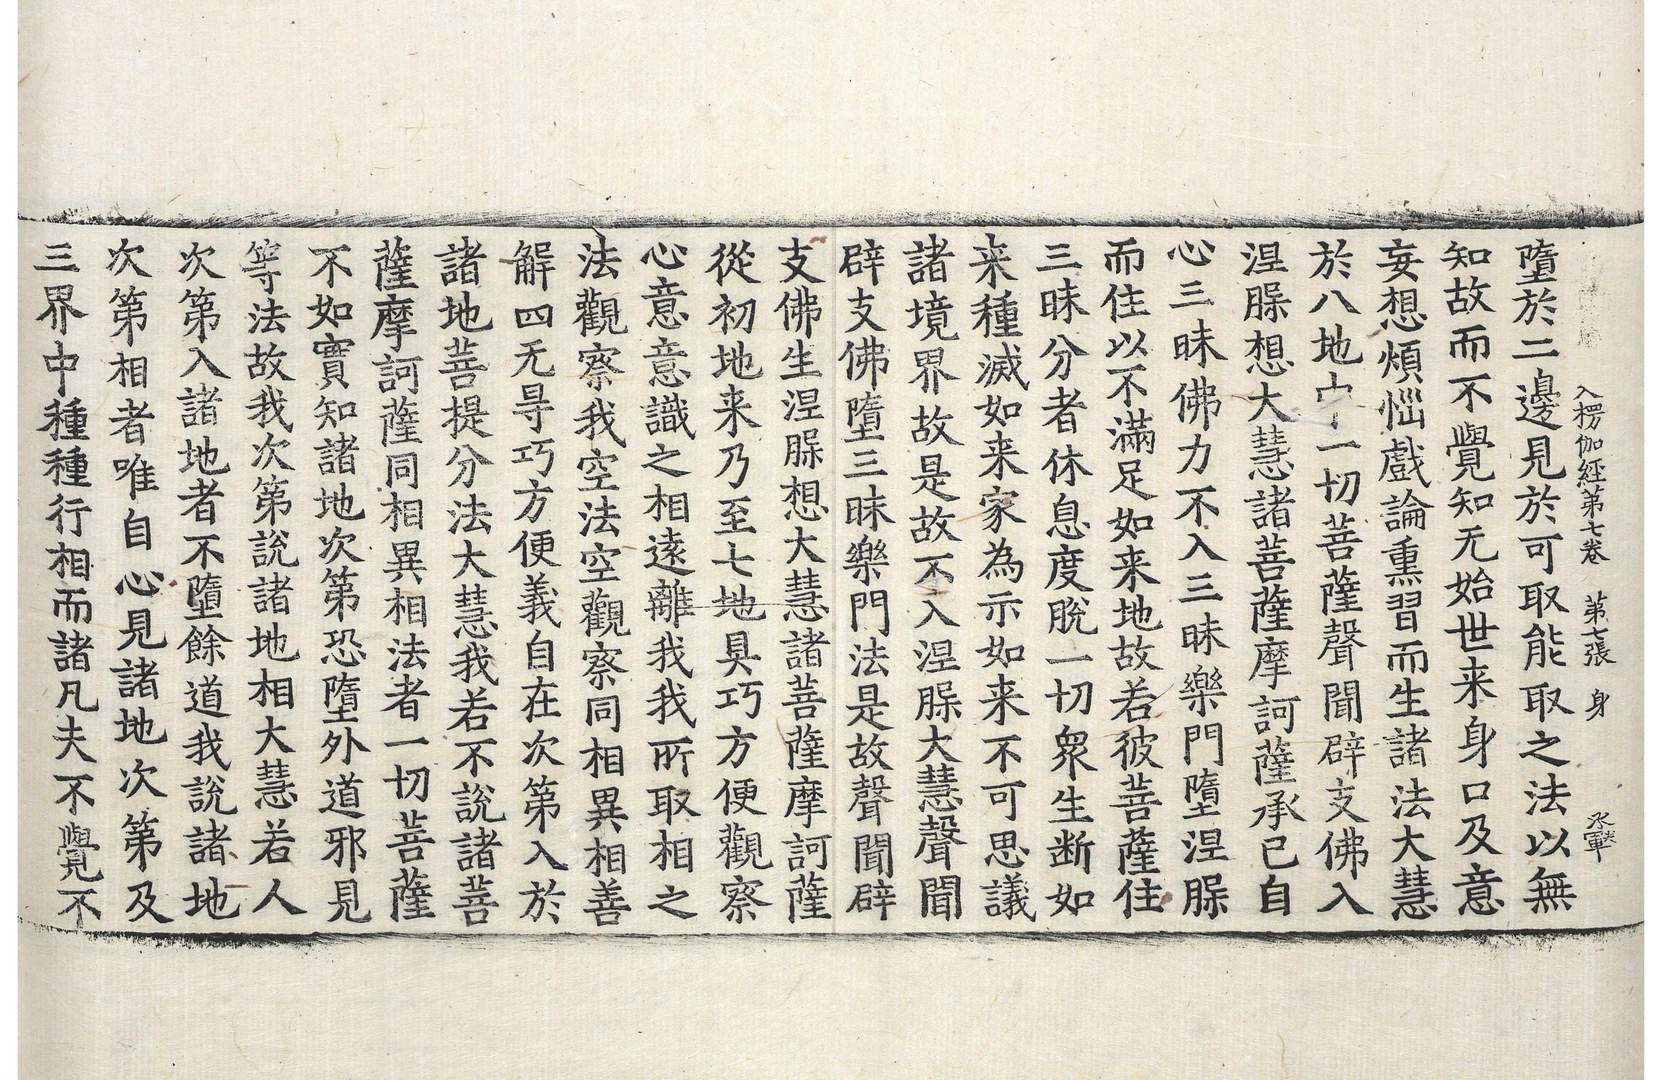 入楞伽經第七卷 第七張 身
墮於二邊見於可取能取之法以無
知故而不覺知无始世来身口及意
妄想煩惱戲論熏習而生諸法大慧
於八地中一切菩薩聲聞辟支佛入
涅槃想大慧諸菩薩摩訶薩承已自
心三昧佛力不入三昧樂門墮涅槃
而住以不滿足如来地故若彼菩薩住
三昧分者休息度脫一切衆生断如
来種滅如来家為示如来不可思議
諸境界故是故不入涅槃大慧聲聞
辟支佛墮三昧樂門法是故聲聞辟
支佛生涅槃想大慧諸菩薩摩訶薩
從初地来乃至七地具巧方便觀察
心意意識之相遠離我我所取相之
法觀察我空法空觀察同相異相善
解四无㝵巧方便義自在次第入於
諸地菩提分法大慧我若不說諸菩
薩摩訶薩同相異相法者一切菩薩
不如實知諸地次第恐墮外道邪見
等法故我次第說諸地相大慧若人
次第入諸地者不墮餘道我說諸地
次第相者唯自心見諸地次第及
三界中種種行相而諸凡夫不覺不